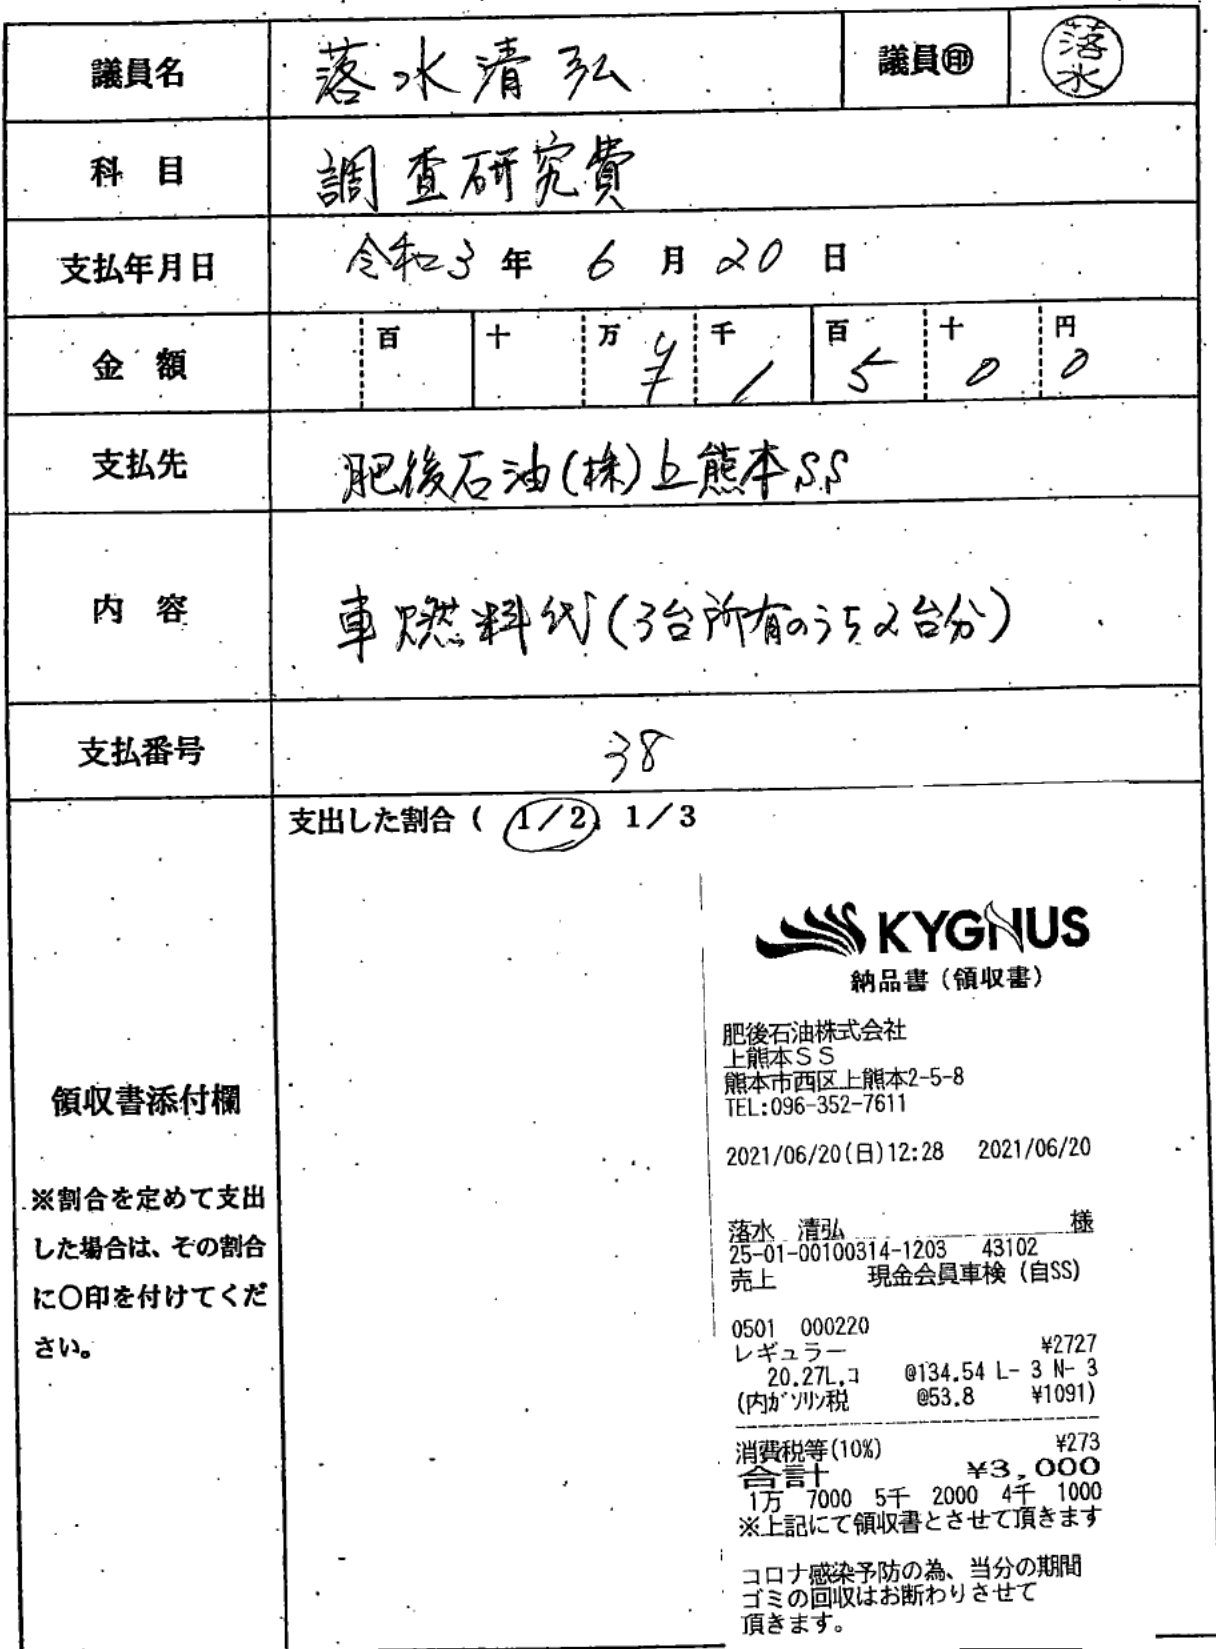 議員名 落水清弘 議員㊞ 落水
科 目 調査研究費
支払年月日 令和3年 6月20日
金 額 百 十 万 ¥ 千 1 百 5 十 0 円 0
支払先 肥後石油(株)上熊本SS
内 容 車燃料代(3台所有のうち2台分)
支払番号 38
支出した割合( 1/2、1/3
領収書添付欄
※割合を定めて支出
した場合は、その割合
に〇印を付けてくだ
さい。
KYGNUS
納品書(領収書)
肥後石油株式会社
上熊本SS
熊本市西区上熊本2-5-8
TEL:096-352-7611
2021/06/20(日)12:28 2021/06/20
落水 清弘 様
25-01-00100314-1203 43102
売上 現金会員車検(自SS)
0501 000220
レギュラー ¥2727
20.27L,コ @134.54 L- 3 N- 3
(内ガソリン税 @53.8 ¥1091)
消費税等(10%) ¥273
合計 ¥3,000
1万 7000 5千 2000 4千 1000
※上記にて領収書とさせて頂きます
コロナ感染予防の為、当分の期間
ゴミの回収はお断わりさせて
頂きます。